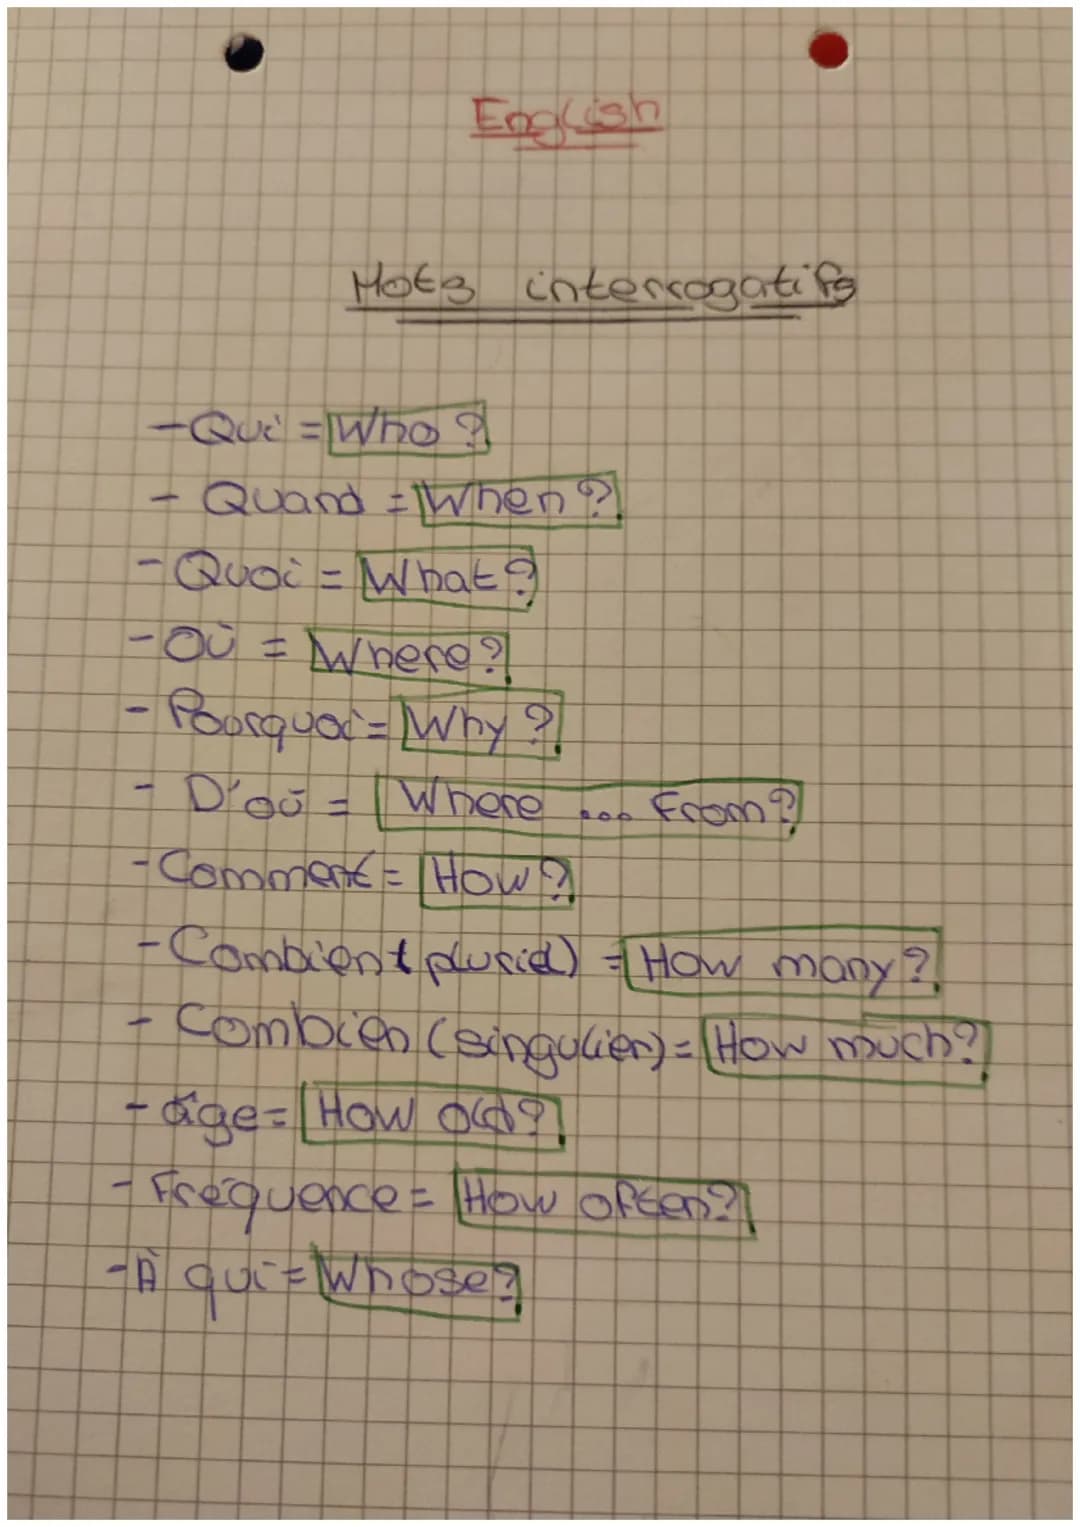 English
Mots interrogatifs
- Qui = Who ?
- Quand = When ?
- Quoi = What ?
- Où = Where ?
- Pourquoi = Why ?
- D'où = Where ... From ?
- Comment = How ?
- Combien (pluriel) = How many ?
- Combien (singulier) = How much ?
- âge = How old ?
- Fréquence = How often ?
- À qui = Whose ?